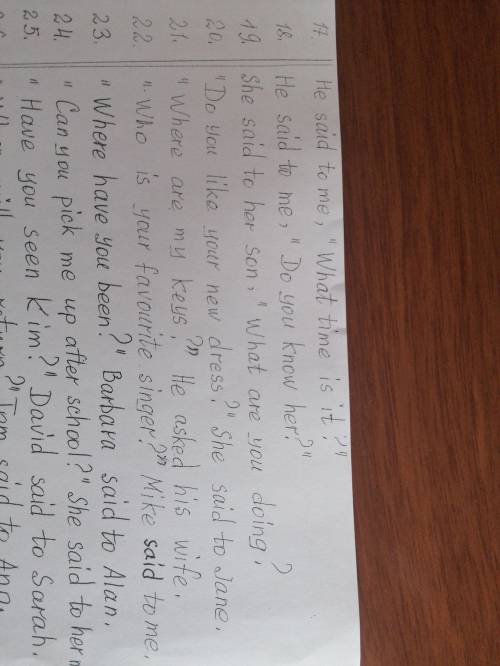 17. He said to me, "What time is it?"
18. He said to me, "Do you know her?"
19. She said to her son, "What are you doing,?
20. "Do you like your new dress,?" She said to Jane.
21. "Where are my keys,?" He asked his wife.
22. "Who is your favourite singer?" Mike said to me.
23. "Where have you been?" Barbara said to Alan.
24. "Can you pick me up after school?" She said to her
25. "Have you seen Kim?" David said to Sarah.
will you return?" Tom said to Ana.